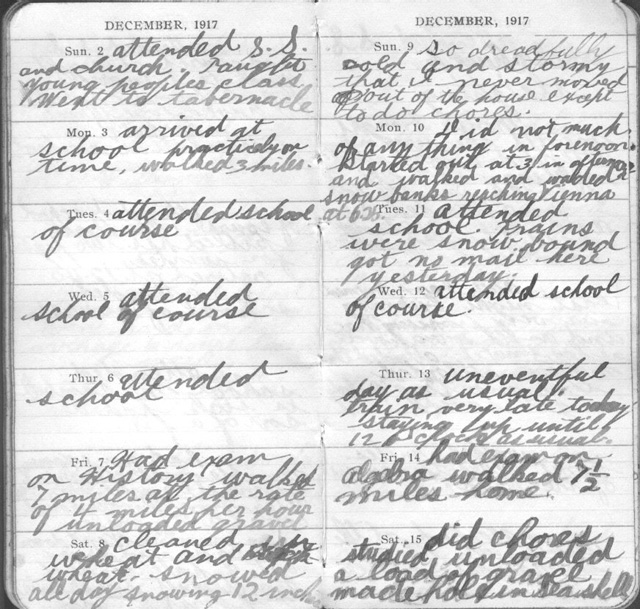 DECEMBER, 1917
Sun. 2 attended S. S.
and church. Taught
young peoples class
Went to tabernacle
Mon. 3 arrived at
school practicly on
time, walked 3 miles.
Tues. 4 attended school
of course
Wed. 5 attended
school of course
Thur. 6 attended
school
Fri. 7 Had exam
on History walked
7 miles at the rate
of 4 miles per hour
unloaded gravel
Sat. 8 cleaned
wheat and
wheat. snowed
all day snowing 12 inch
DECEMBER, 1917
Sun. 9 so dreadfully
cold and stormy
that I never moved
out of the house except
to do chores.
Mon. 10 Did not much
of any thing in forenoon
started out at 3 in afternoon
and walked and waded
snow banks reaching Vienna
at 6
Tues. 11 attended
school. Trains
were snow bound
got no mail here
yesterday.
Wed. 12 attended school
of course.
Thur. 13 uneventful
day as usual.
train very late today
staying up until
12 o'clock as usual.
Fri. 14 had exam on
algebra walked 7 1/2
miles home.
Sat. 15 did chores
studied, unloaded
a load of gravel
made hole in sea shell